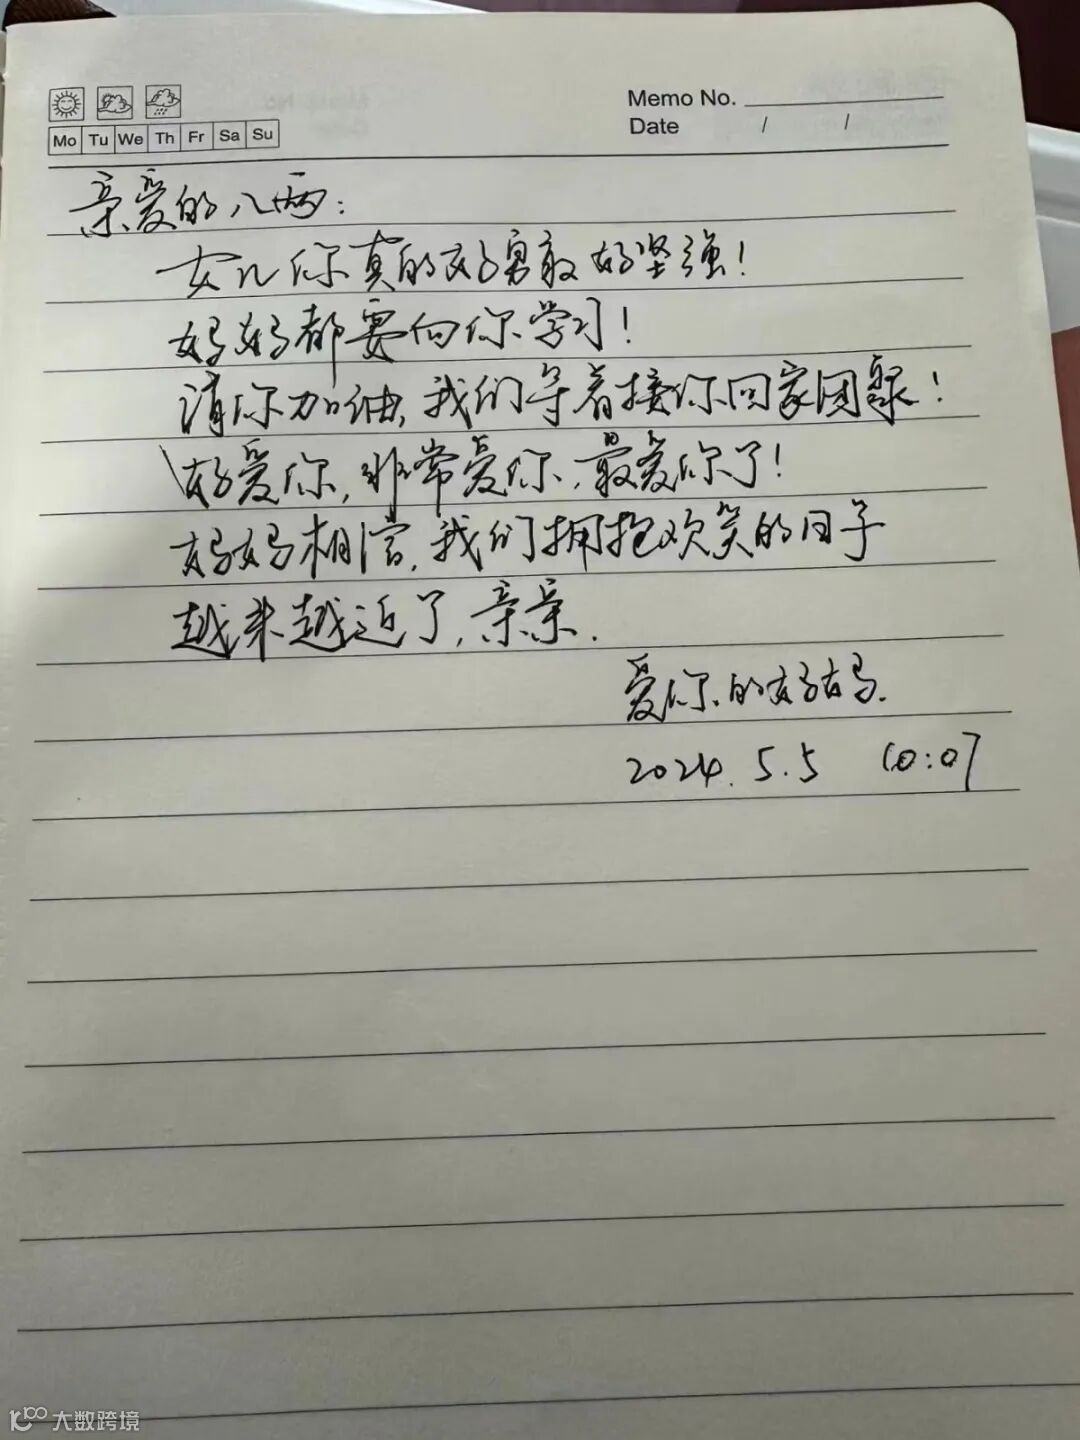 Memo No.
Mo Tu We Th Fr Sa Su
Date / /
亲爱的八两:
女儿你真的好勇敢好坚强!
妈妈都要向你学习!
请你加油,我们等着接你回家团聚!
好爱你,非常爱你,最爱你了!
妈妈相信,我们拥抱欢笑的日子
越来越近了,亲亲.
爱你的妈妈.
2024.5.5 10:07
大数跨境